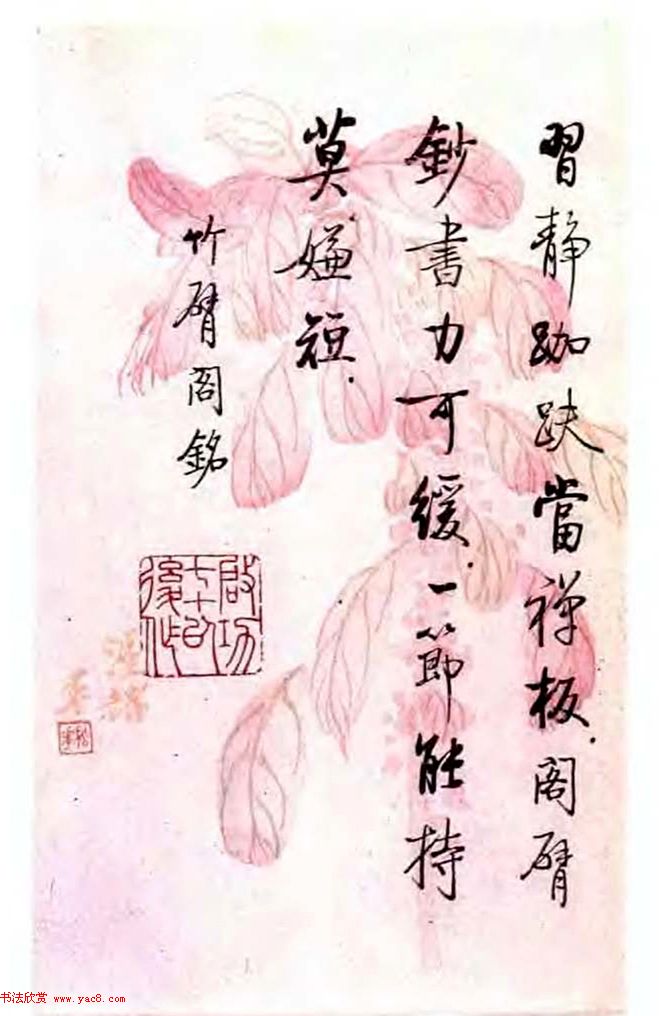 習靜跏趺當禅板.閣臂
鈔書力可緩.一節能持
莫嫌短.
竹臂閣銘
啟功
七十以
後作
书法欣赏 www.yac8.com